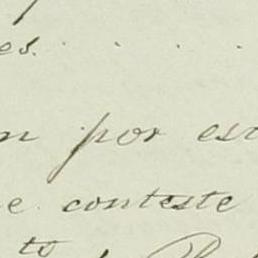 es.
n por es
e conteste
to